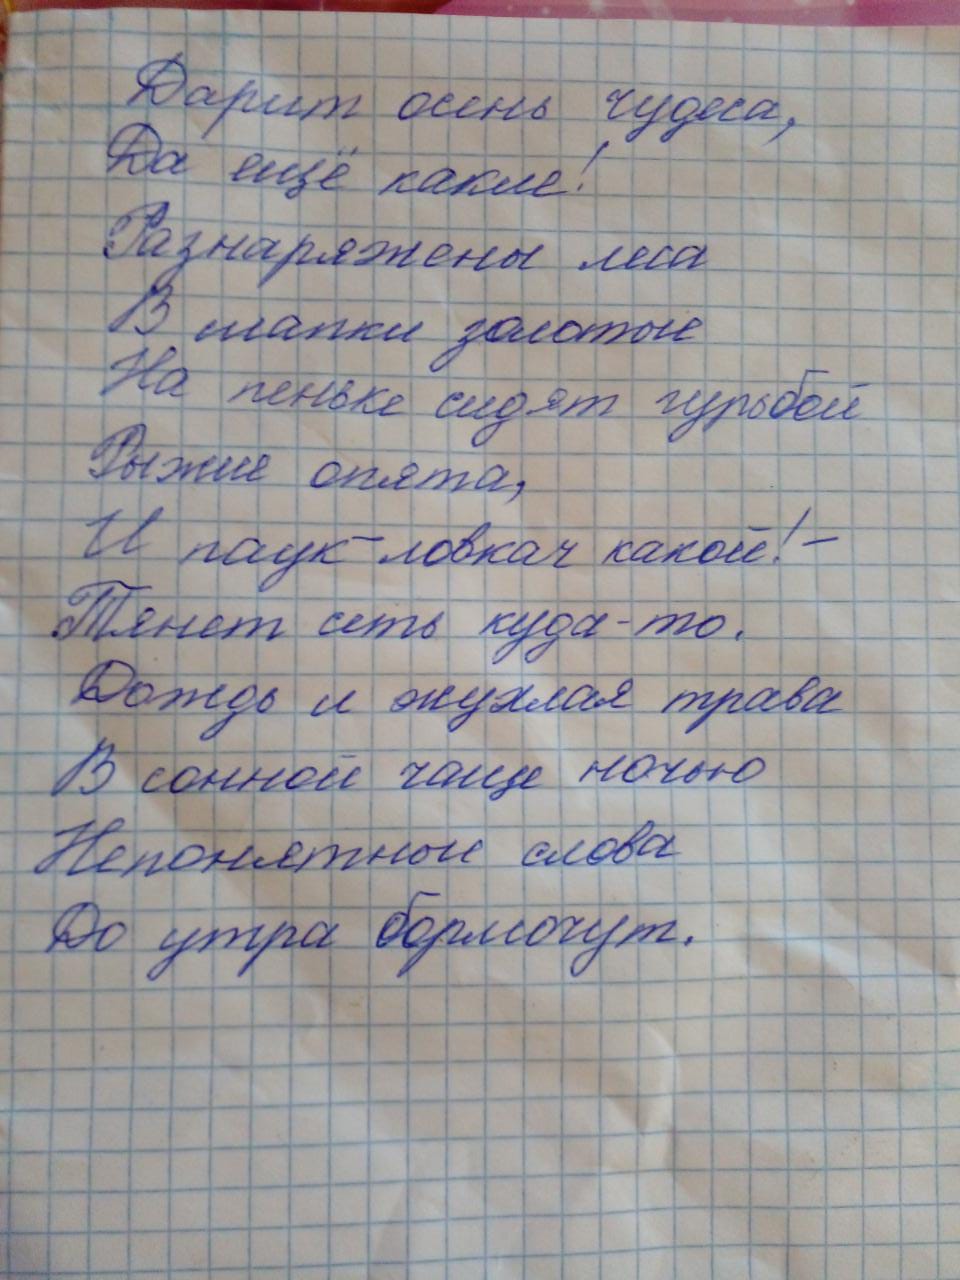 Дарит осень чудеса,
Да ещё какие!
Разнаряжены леса
В шапки золотые
На пеньке сидят гурьбой
Рыжие опята,
И паук-ловкач какой!-
Тянет сеть куда-то.
Дождь и жухлая трава
В сонной чаще ночью
Непонятные слова
До утра бормочут.